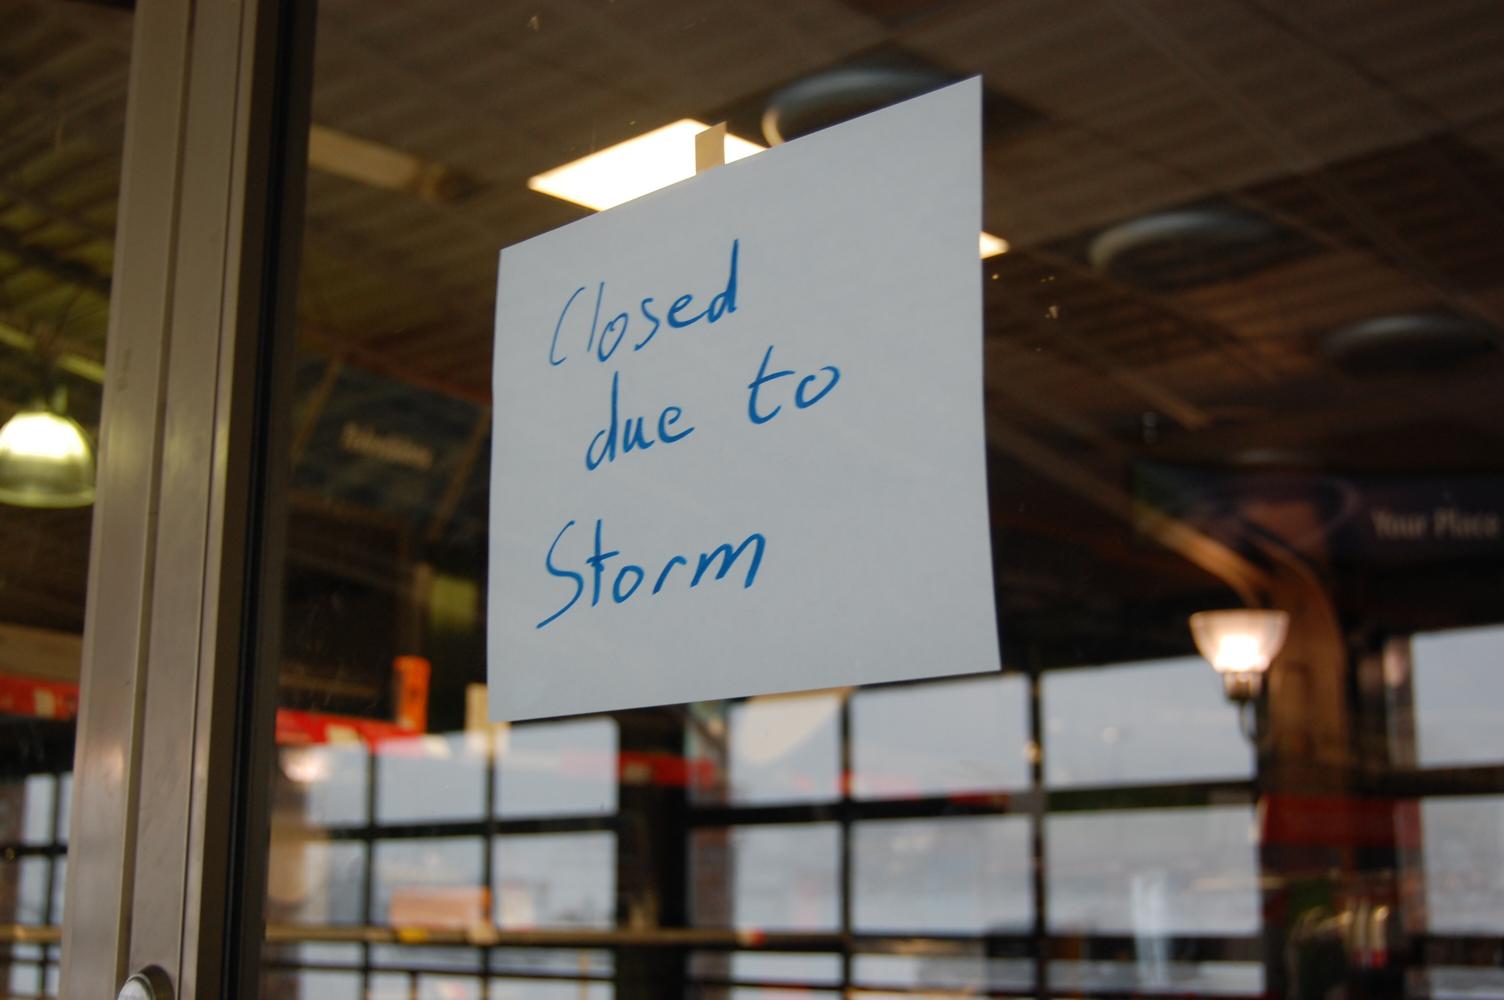 Closed
due to
Storm
Your Place